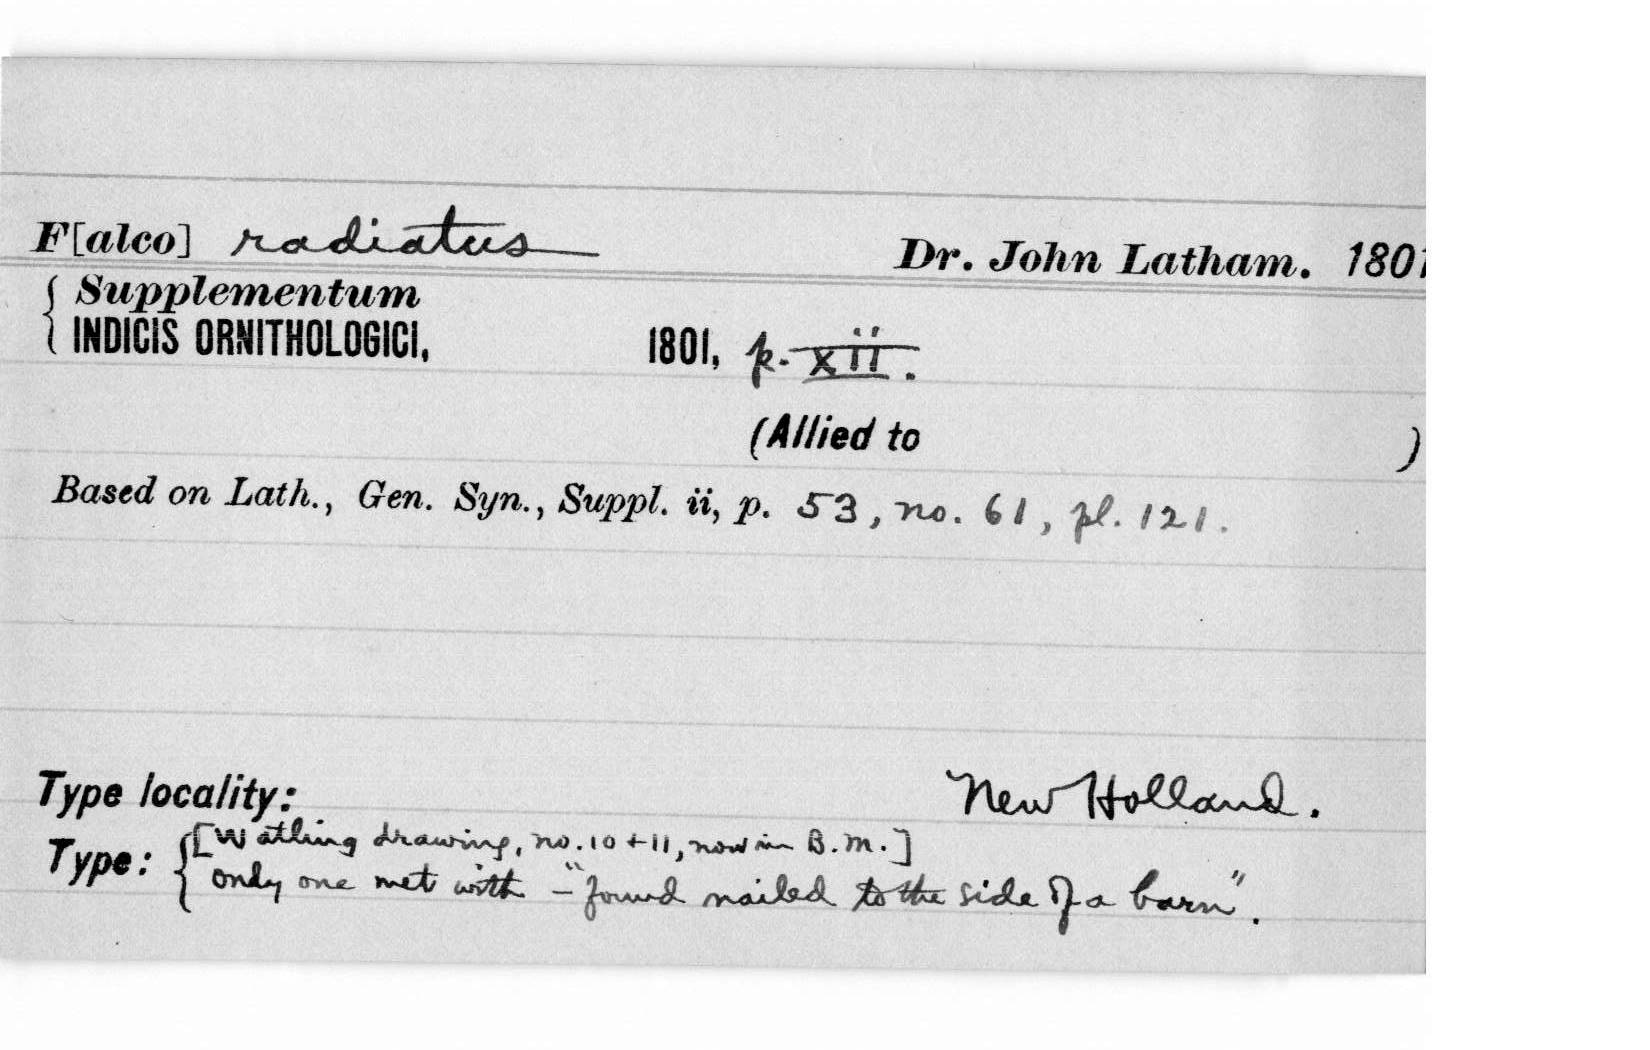 F[alco] radiatus Dr. John Latham. 1801
Supplementum
INDICIS ORNITHOLOGICI, 1801, p. xii.
(Allied to )
Based on Lath., Gen. Syn., Suppl. ii, p. 53, no. 61, pl. 121.
Type locality: New Holland.
[Watling drawing, no. 10 + 11, now in B.M.]
Type: only one met with – "found nailed to the side of a barn".